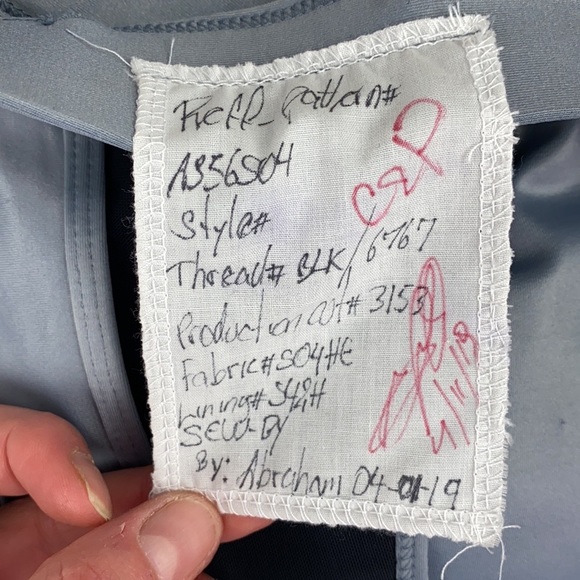 Pattern#
AS56S04
CSP
Style#
Thread# BLK/6767
Production cut# 3153
Fabric# S04HE
Lining#
4/11/19
SEW-BY
By: Abraham 04-01-19